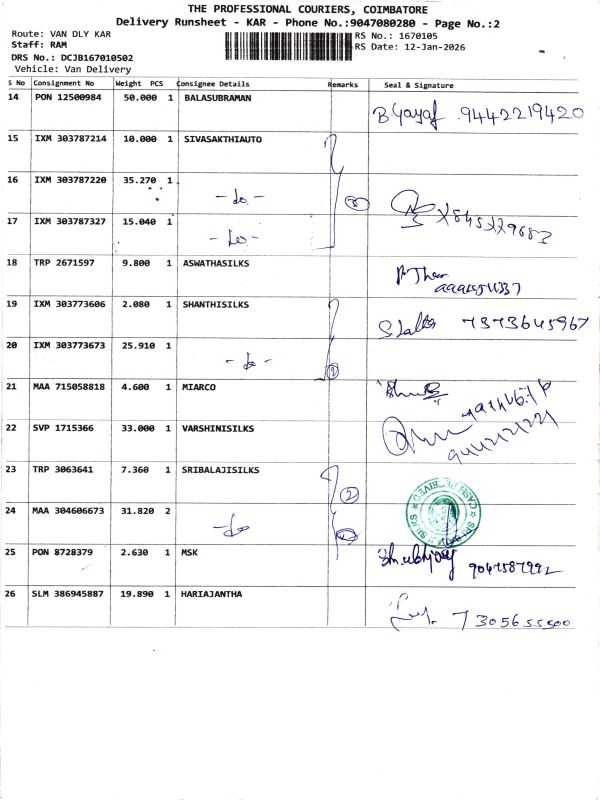 THE PROFESSIONAL COURIERS, COIMBATORE
Delivery Runsheet - KAR - Phone No.:9047080280 - Page No.:2
Route: VAN DLY KAR RS No.: 1670105
Staff: RAM RS Date: 12-Jan-2026
DRS No.: DCJB167010502
Vehicle: Van Delivery
S No Consignment No Weight PCS Consignee Details Remarks Seal & Signature
14 PON 12500984 50.000 1 BALASUBRAMAN 9442219420
15 IXM 303787214 10.000 1 SIVASAKTHIAUTO
16 IXM 303787220 35.270 1 -do- 3
17 IXM 303787327 15.040 1 -do-
18 TRP 2671597 9.800 1 ASWATHASILKS
19 IXM 303773606 2.080 1 SHANTHISILKS 7373645967
20 IXM 303773673 25.910 1 -do-
21 MAA 715058818 4.600 1 MIARCO
22 SVP 1715366 33.000 1 VARSHINISILKS
23 TRP 3063641 7.360 1 SRIBALAJISILKS 2
24 MAA 304606673 31.820 2 -do-
25 PON 8728379 2.630 1 MSK
26 SLM 386945887 19.890 1 HARIAJANTHA 7305655500